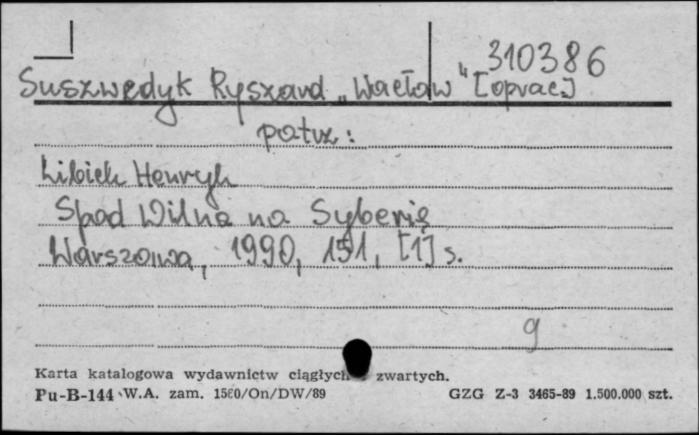 310386
Suszwedyk Ryszard „Wacław" [oprac.]
patrz:
Libich Henryk
Spod Wilna na Syberię
Warszawa, 1990, 151, [1] s.
g
Karta katalogowa wydawnictw ciągłych zwartych.
Pu-B-144 W.A. zam. 1560/On/DW/89 GZG Z-3 3465-89 1.500.000 szt.